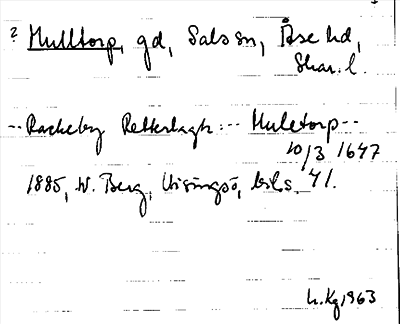 ? Hulltorp, gd, Sals sn, Åse hd,
Skar. l.
-- Rackeby Retterlagh :-- Huletorp --
10/3 1647
1885, W. Berg, Visingsö, bil s. 41.
L. Kg 1963